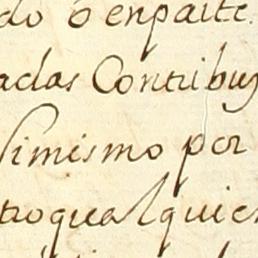 do o enparte.
adas Contribuy
simismo por
troqualquier